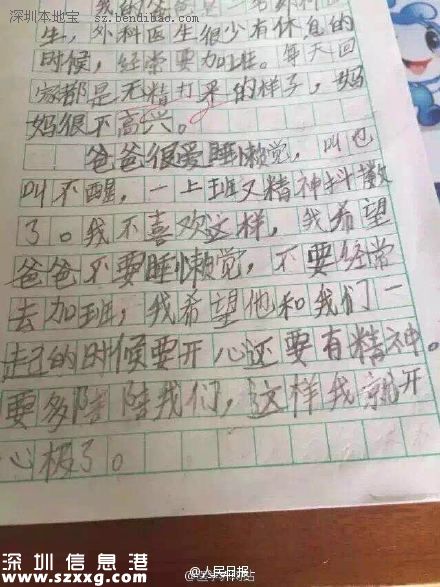 深圳本地宝 sz.bendibao.com
我的爸爸是一名外科医
生，外科医生很少有休息的
时候，经常要加班。每天回
家都是无精打采的样子，妈
妈很不高兴。
爸爸很爱睡懒觉，叫也
叫不醒，一上班又精神抖擞
了。我不喜欢这样，我希望
爸爸不要睡懒觉，不要经常
去加班，我希望他和我们一
起的时候要开心还要有精神。
要多陪陪我们，这样我就开
心极了。
@人民日报
深圳信息港
www.szxxg.com